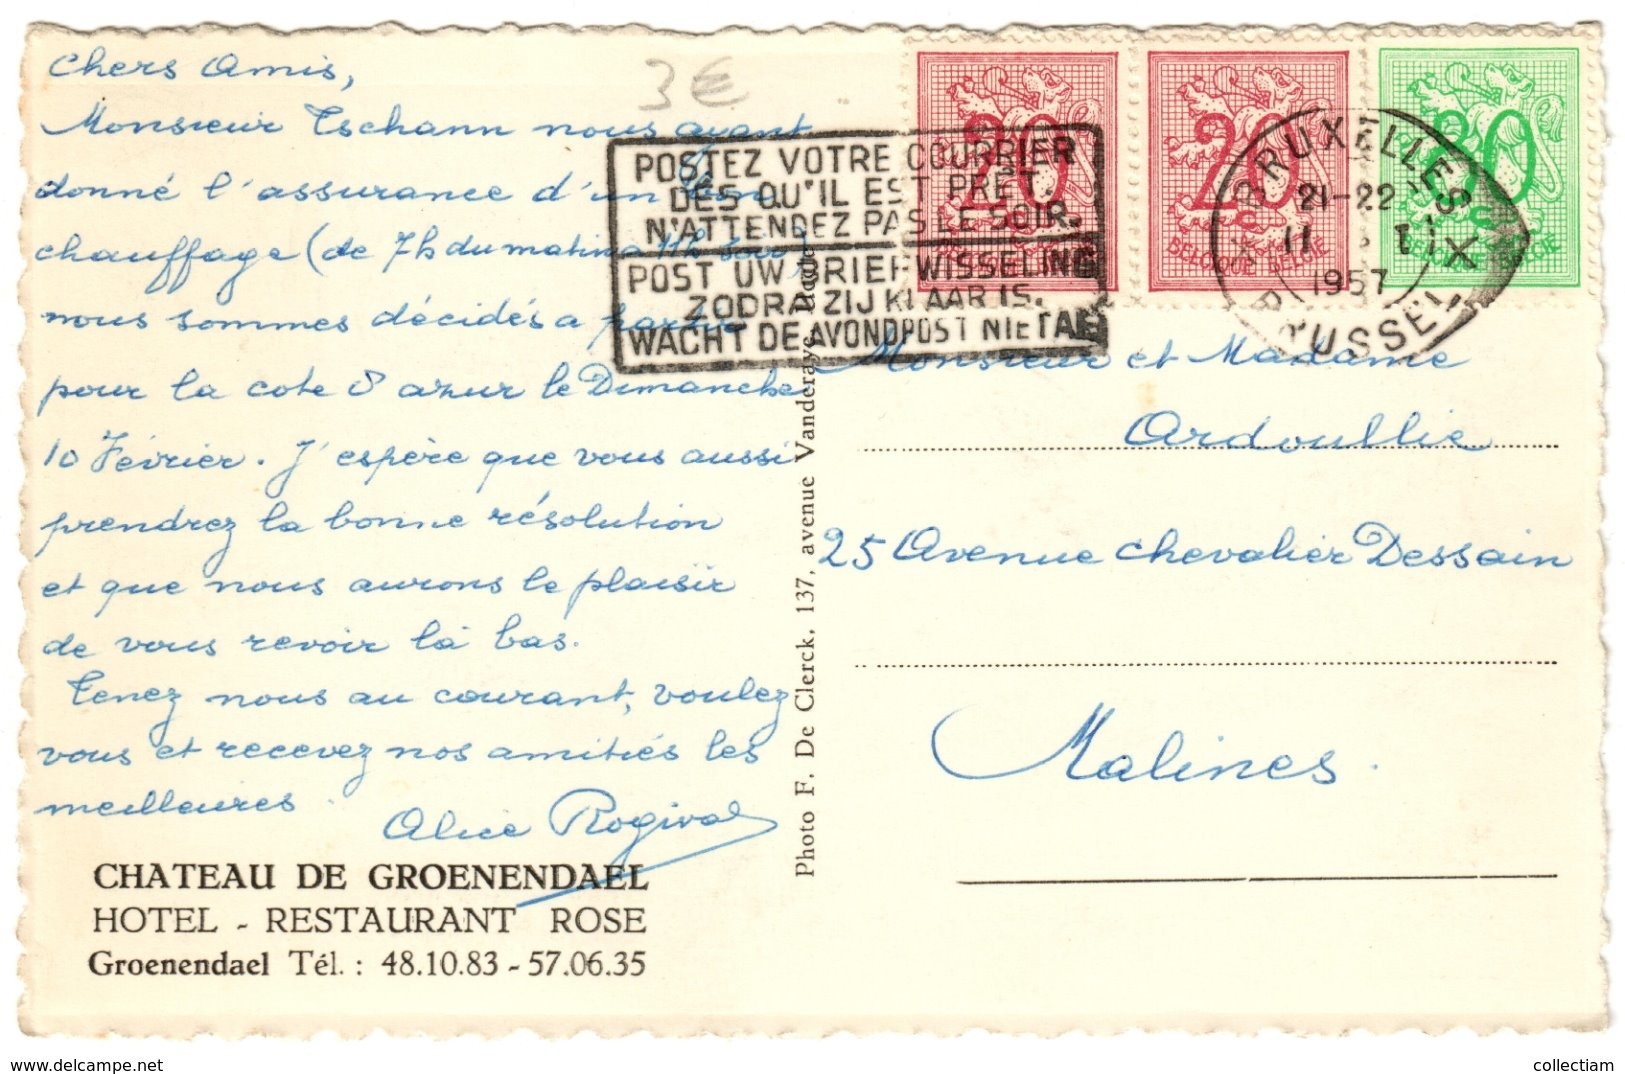 Chers Amis,
Monsieur Tschann nous ayant
donné l'assurance d'un bon
chauffage (de 7h du matin a 11h soir)
nous sommes décidés a partir
pour la cote d'azur le Dimanche
10 Février. J'espère que vous aussi
prendrez la bonne résolution
et que nous aurons le plaisir
de vous revoir là bas.
Tenez nous au courant, voulez
vous et recevez nos amitiés les
meilleures.
Alice Rogival
CHATEAU DE GROENENDAEL
HOTEL - RESTAURANT ROSE
Groenendael Tél. : 48.10.83 - 57.06.35
3 €
POSTEZ VOTRE COURRIER
DÈS QU'IL EST PRÊT.
N'ATTENDEZ PAS LE SOIR.
POST UW BRIEFWISSELING
ZODRA ZIJ KLAAR IS.
WACHT DE AVONDPOST NIET AF
20c
BELGIQUE BELGIE
20c
BELGIQUE BELGIE
BELGIQUE BELGIE
X BRUXELLES X
21-22
1957
BRUSSEL
Photo F. De Clerck, 137, avenue Vanderaye,
Monsieur et Madame
Ardoullie
25 Avenue Chevalier Dessain
Malines.
www.delcampe.net
collectiam